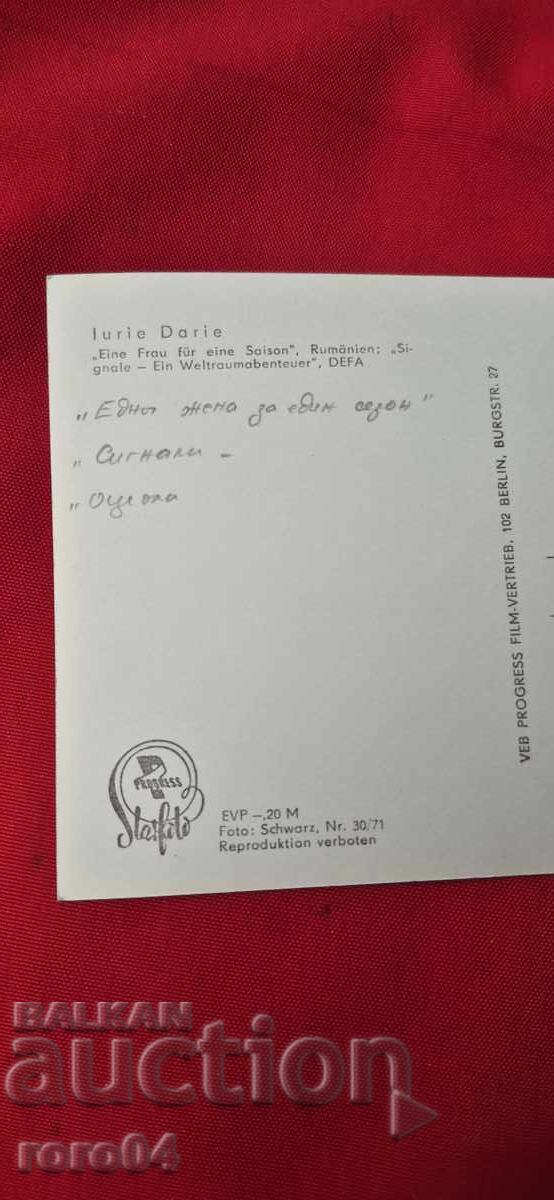 Iurie Darie
„Eine Frau für eine Saison", Rumänien; „Si-
gnale – Ein Weltraumabenteuer", DEFA
„Една жена за един сезон"
„Сигнали –
„Оцеола
VEB PROGRESS FILM-VERTRIEB, 102 BERLIN, BURGSTR. 27
PROGRESS
Starfoto
EVP –,20 M
Foto: Schwarz, Nr. 30/71
Reproduktion verboten
BALKAN
auction
roro04